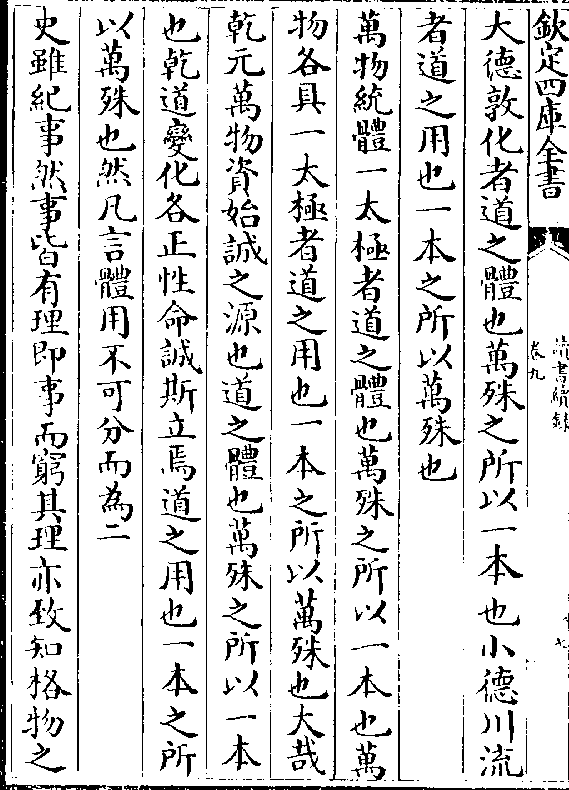 欽定四庫全書
讀書續錄
卷九
大德敦化者道之體也萬殊之所以一本也小德川流
者道之用也一本之所以萬殊也
萬物統體一太極者道之體也萬殊之所以一本也萬
物各具一太極者道之用也一本之所以萬殊也大哉
乾元萬物資始誠之源也道之體也萬殊之所以一本
也乾道變化各正性命誠斯立焉道之用也一本之所
以萬殊也然凡言體用不可分而為二
史雖紀事然事皆有理即事而窮其理亦致知格物之